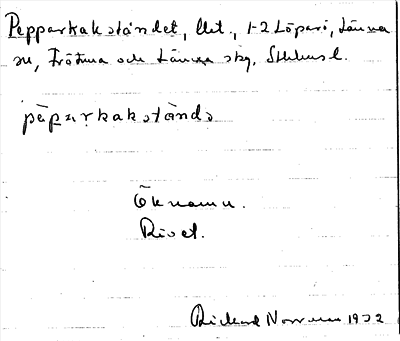 Pepparkakståndet, llt., 1-2 Löparö, Länna
sn, Frötuna och Länna skg, Sthlms l.
pèparkakstànds
Öknamn.
Rivet.
Rickard Norrman 1932